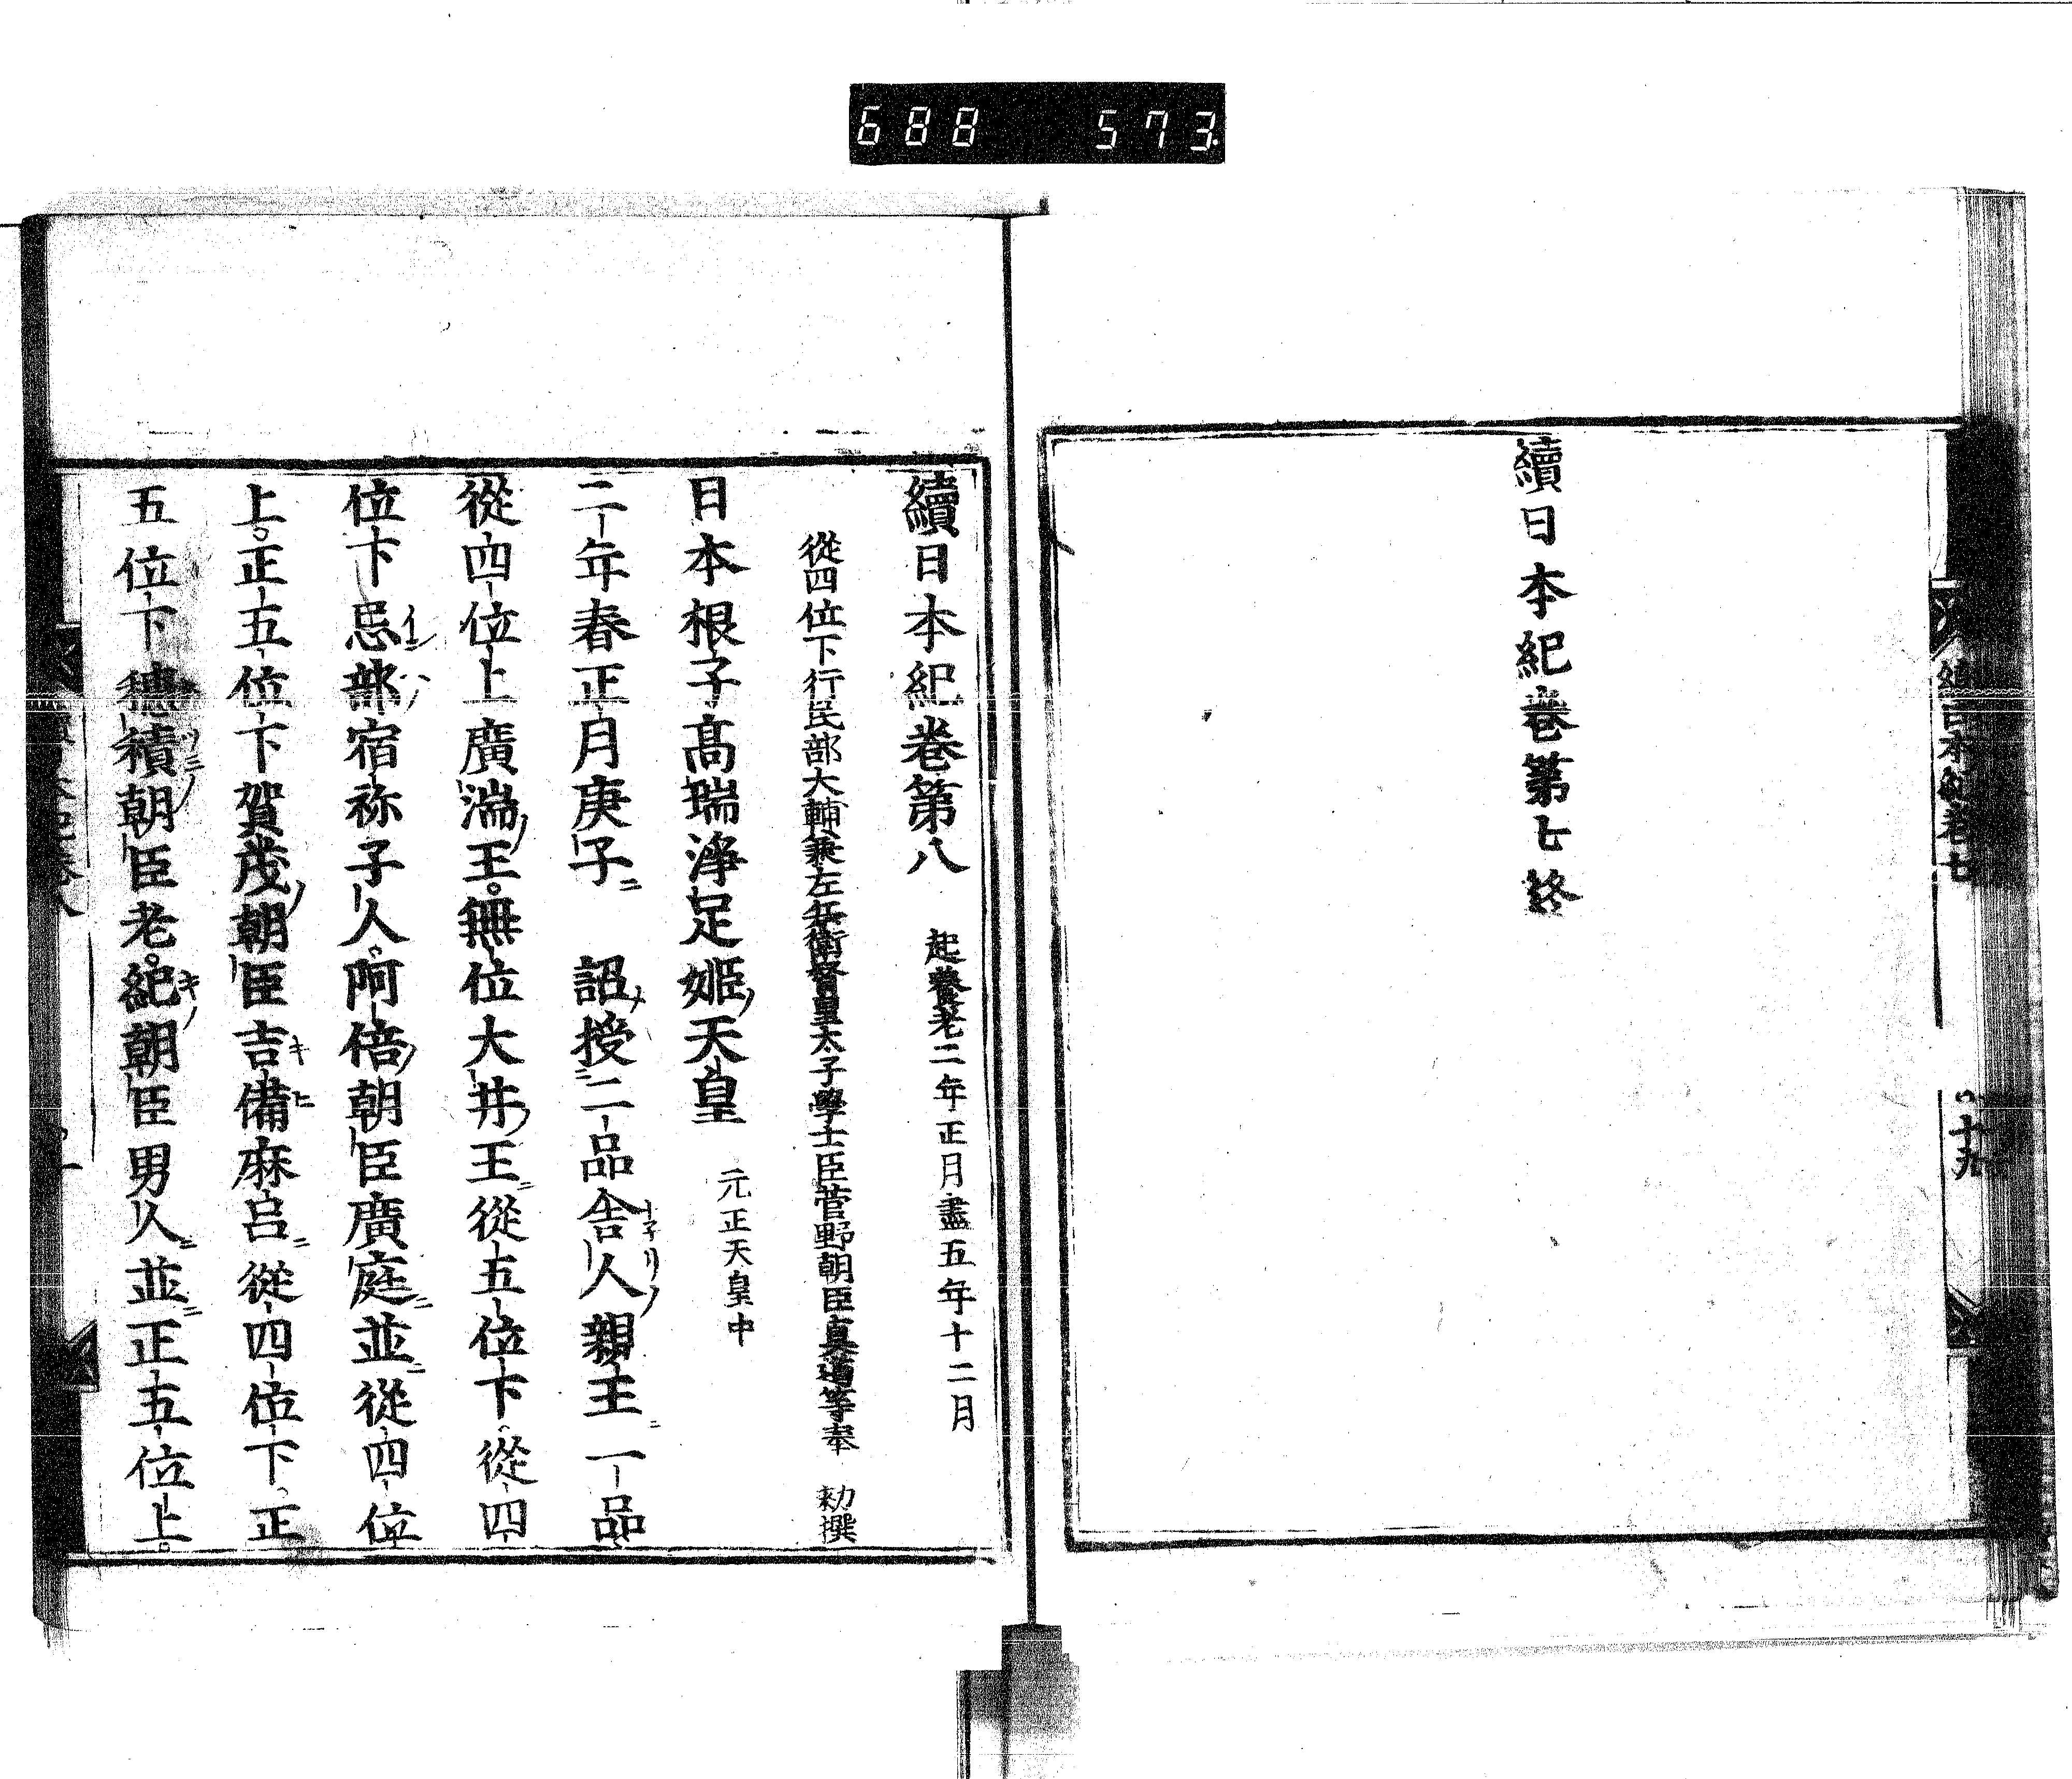 688 573
續日本紀卷七
十九
續日本紀卷第七終
續日本紀卷第八 起養老二年正月盡五年十二月
從四位下行民部大輔兼左兵衛督皇太子學士臣菅野朝臣真道等奉 勅撰
日本根子高瑞淨足姬ノ天皇 元正天皇中
二年春正月庚子ニ 詔メ授ニ二品舎人ノ親王ニ一品
從四位上廣湍ノ王。無位大井ノ王ニ從五位下。從四
位下忌部宿祢子人。阿倍ノ朝臣廣庭ニ並ニ從四位
上。正五位下賀茂ノ朝臣吉備麻呂ニ從四位下。正
五位下穗積ノ朝臣老。紀ノ朝臣男人ニ並ニ正五位上。